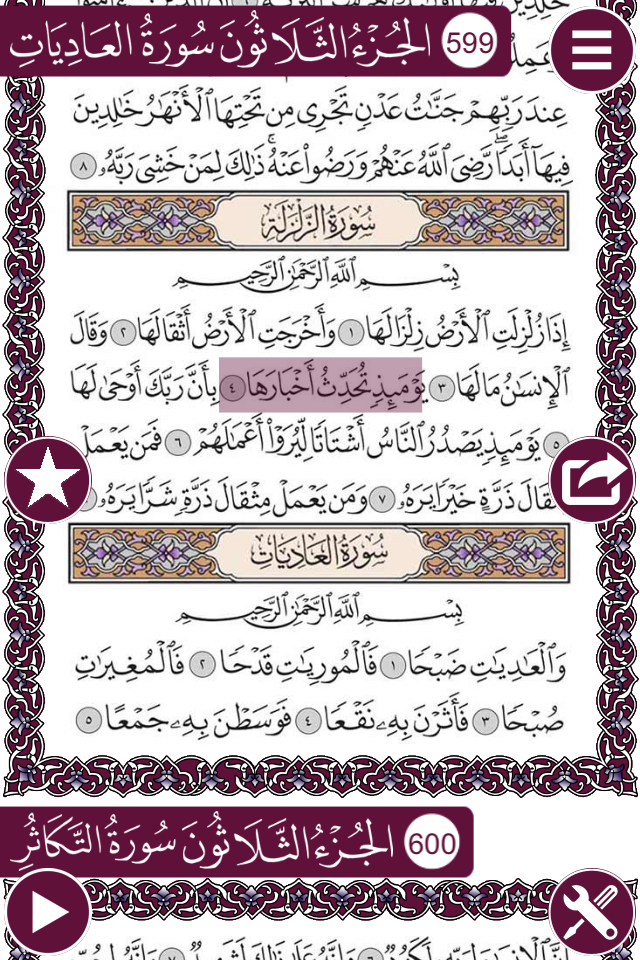 599 الجُزْءُ الثَّلَاثُونَ سُورَةُ العَادِيَاتِ
عِندَ رَبِّهِمْ جَنَّـٰتُ عَدْنٍ تَجْرِى مِن تَحْتِهَا ٱلْأَنْهَـٰرُ خَـٰلِدِينَ
فِيهَآ أَبَدًا ۖ رَّضِىَ ٱللَّهُ عَنْهُمْ وَرَضُوا۟ عَنْهُ ۚ ذَٰلِكَ لِمَنْ خَشِىَ رَبَّهُۥ ٨
سُورَةُ الزَّلْزَلَةِ
بِسْمِ ٱللَّهِ ٱلرَّحْمَـٰنِ ٱلرَّحِيمِ
إِذَا زُلْزِلَتِ ٱلْأَرْضُ زِلْزَالَهَا ١ وَأَخْرَجَتِ ٱلْأَرْضُ أَثْقَالَهَا ٢ وَقَالَ
ٱلْإِنسَـٰنُ مَا لَهَا ٣ يَوْمَئِذٍ تُحَدِّثُ أَخْبَارَهَا ٤ بِأَنَّ رَبَّكَ أَوْحَىٰ لَهَا
٥ يَوْمَئِذٍ يَصْدُرُ ٱلنَّاسُ أَشْتَاتًا لِّيُرَوْا۟ أَعْمَـٰلَهُمْ ٦ فَمَن يَعْمَلْ
ذَرَّةٍ خَيْرًا يَرَهُۥ ٧ وَمَن يَعْمَلْ مِثْقَالَ ذَرَّةٍ شَرًّا يَرَهُۥ
سُورَةُ العَادِيَاتِ
بِسْمِ ٱللَّهِ ٱلرَّحْمَـٰنِ ٱلرَّحِيمِ
وَٱلْعَـٰدِيَـٰتِ ضَبْحًا ١ فَٱلْمُورِيَـٰتِ قَدْحًا ٢ فَٱلْمُغِيرَٰتِ
صُبْحًا ٣ فَأَثَرْنَ بِهِۦ نَقْعًا ٤ فَوَسَطْنَ بِهِۦ جَمْعًا ٥
600 الجُزْءُ الثَّلَاثُونَ سُورَةُ التَّكَاثُرِ